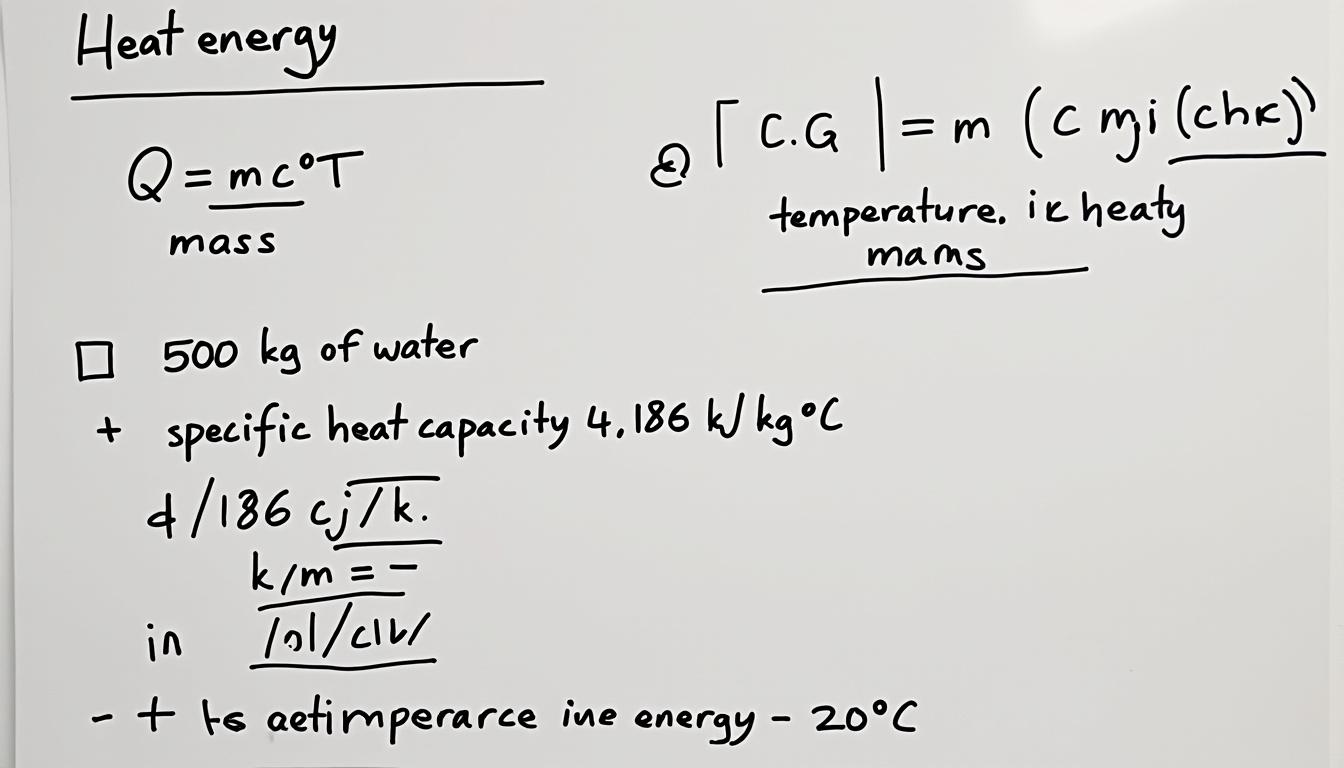 Heat energy
Q = mc°T
mass
C.G = m (c mji (chk))
temperature. ik heaty
mams
500 kg of water
+ specific heat capacity 4.186 kJ/kg°C
d/186 cj/k.
k/m = -
in
- + ts aetimperarce ine energy - 20°C